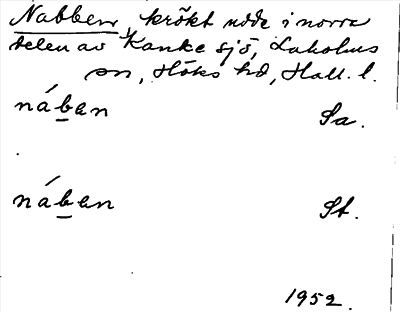 Nabben, krökt udde i norra
delen av Kanke sjö, Laholms
sn, Höks hd, Hall. l.
náben Sa.
náben St.
1952.